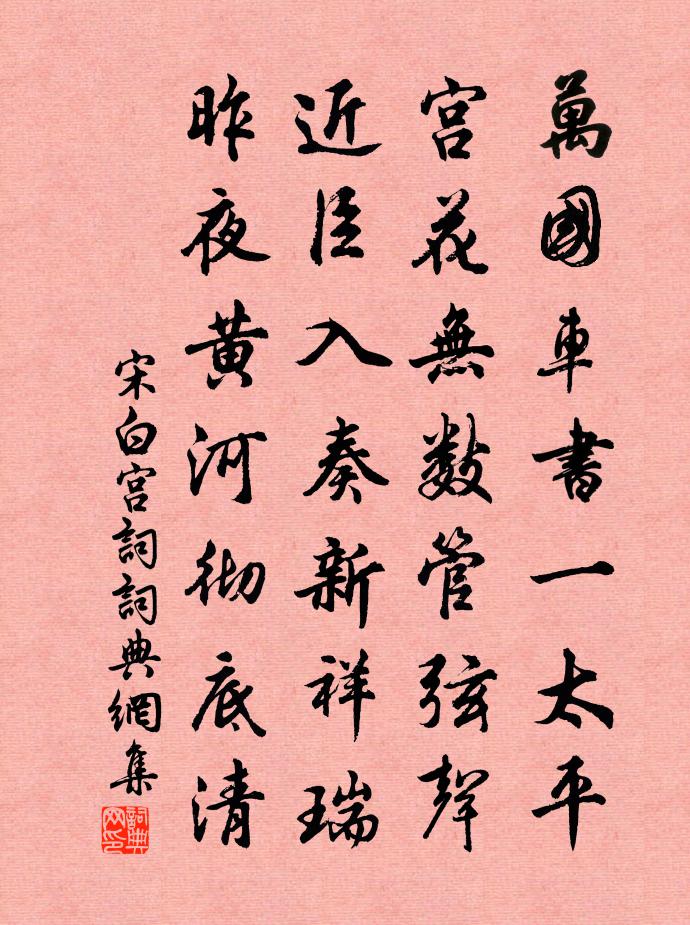 萬國車書一太平
宮花無數管弦聲
近臣入奏新祥瑞
昨夜黄河彻底清
宋白宮詞詞典網集
詞典网印